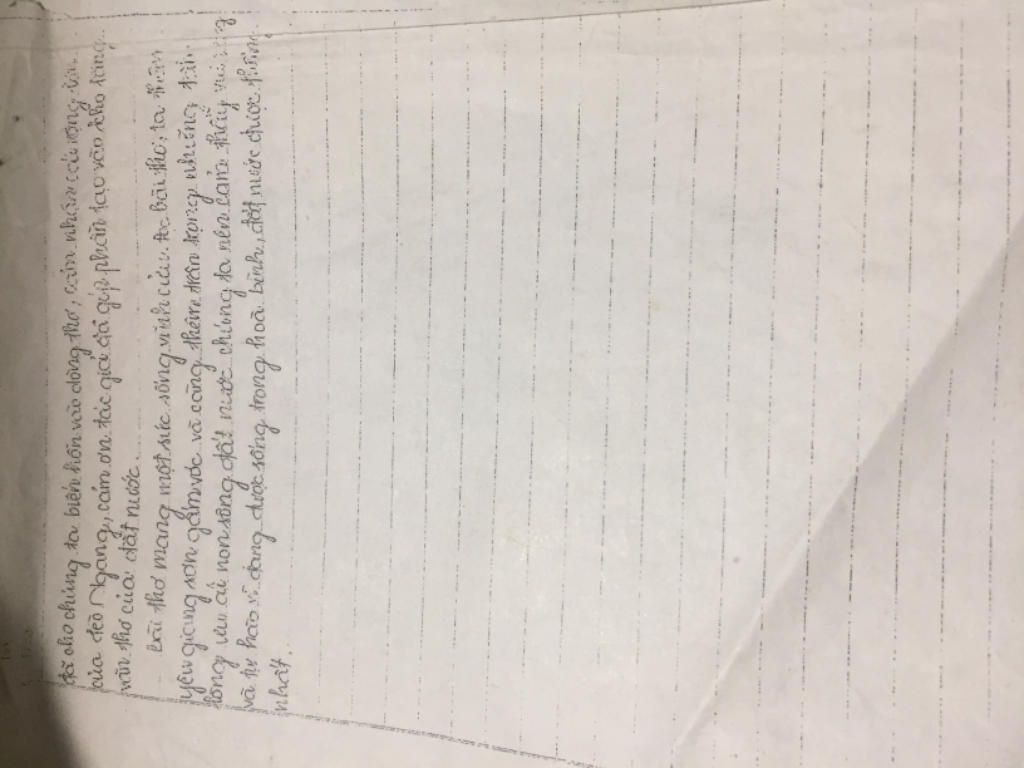 đã cho chúng ta biến hồn vào dòng thơ, cảm nhận cái
của đèo Ngang, cám ơn tác giả đã góp phần tạo vào kho tàng
văn thơ của đất nước.
Bài thơ mang một sức sống vĩnh cửu. Đọc bài thơ, ta thêm
yêu giang sơn gấm vóc và càng thêm trân trọng những tấm
lòng ưu ái non sông đất nước chúng ta nên cảm thấy vui
và tự hào vì đang được sống trong hoà bình, đất nước được thống
nhất.